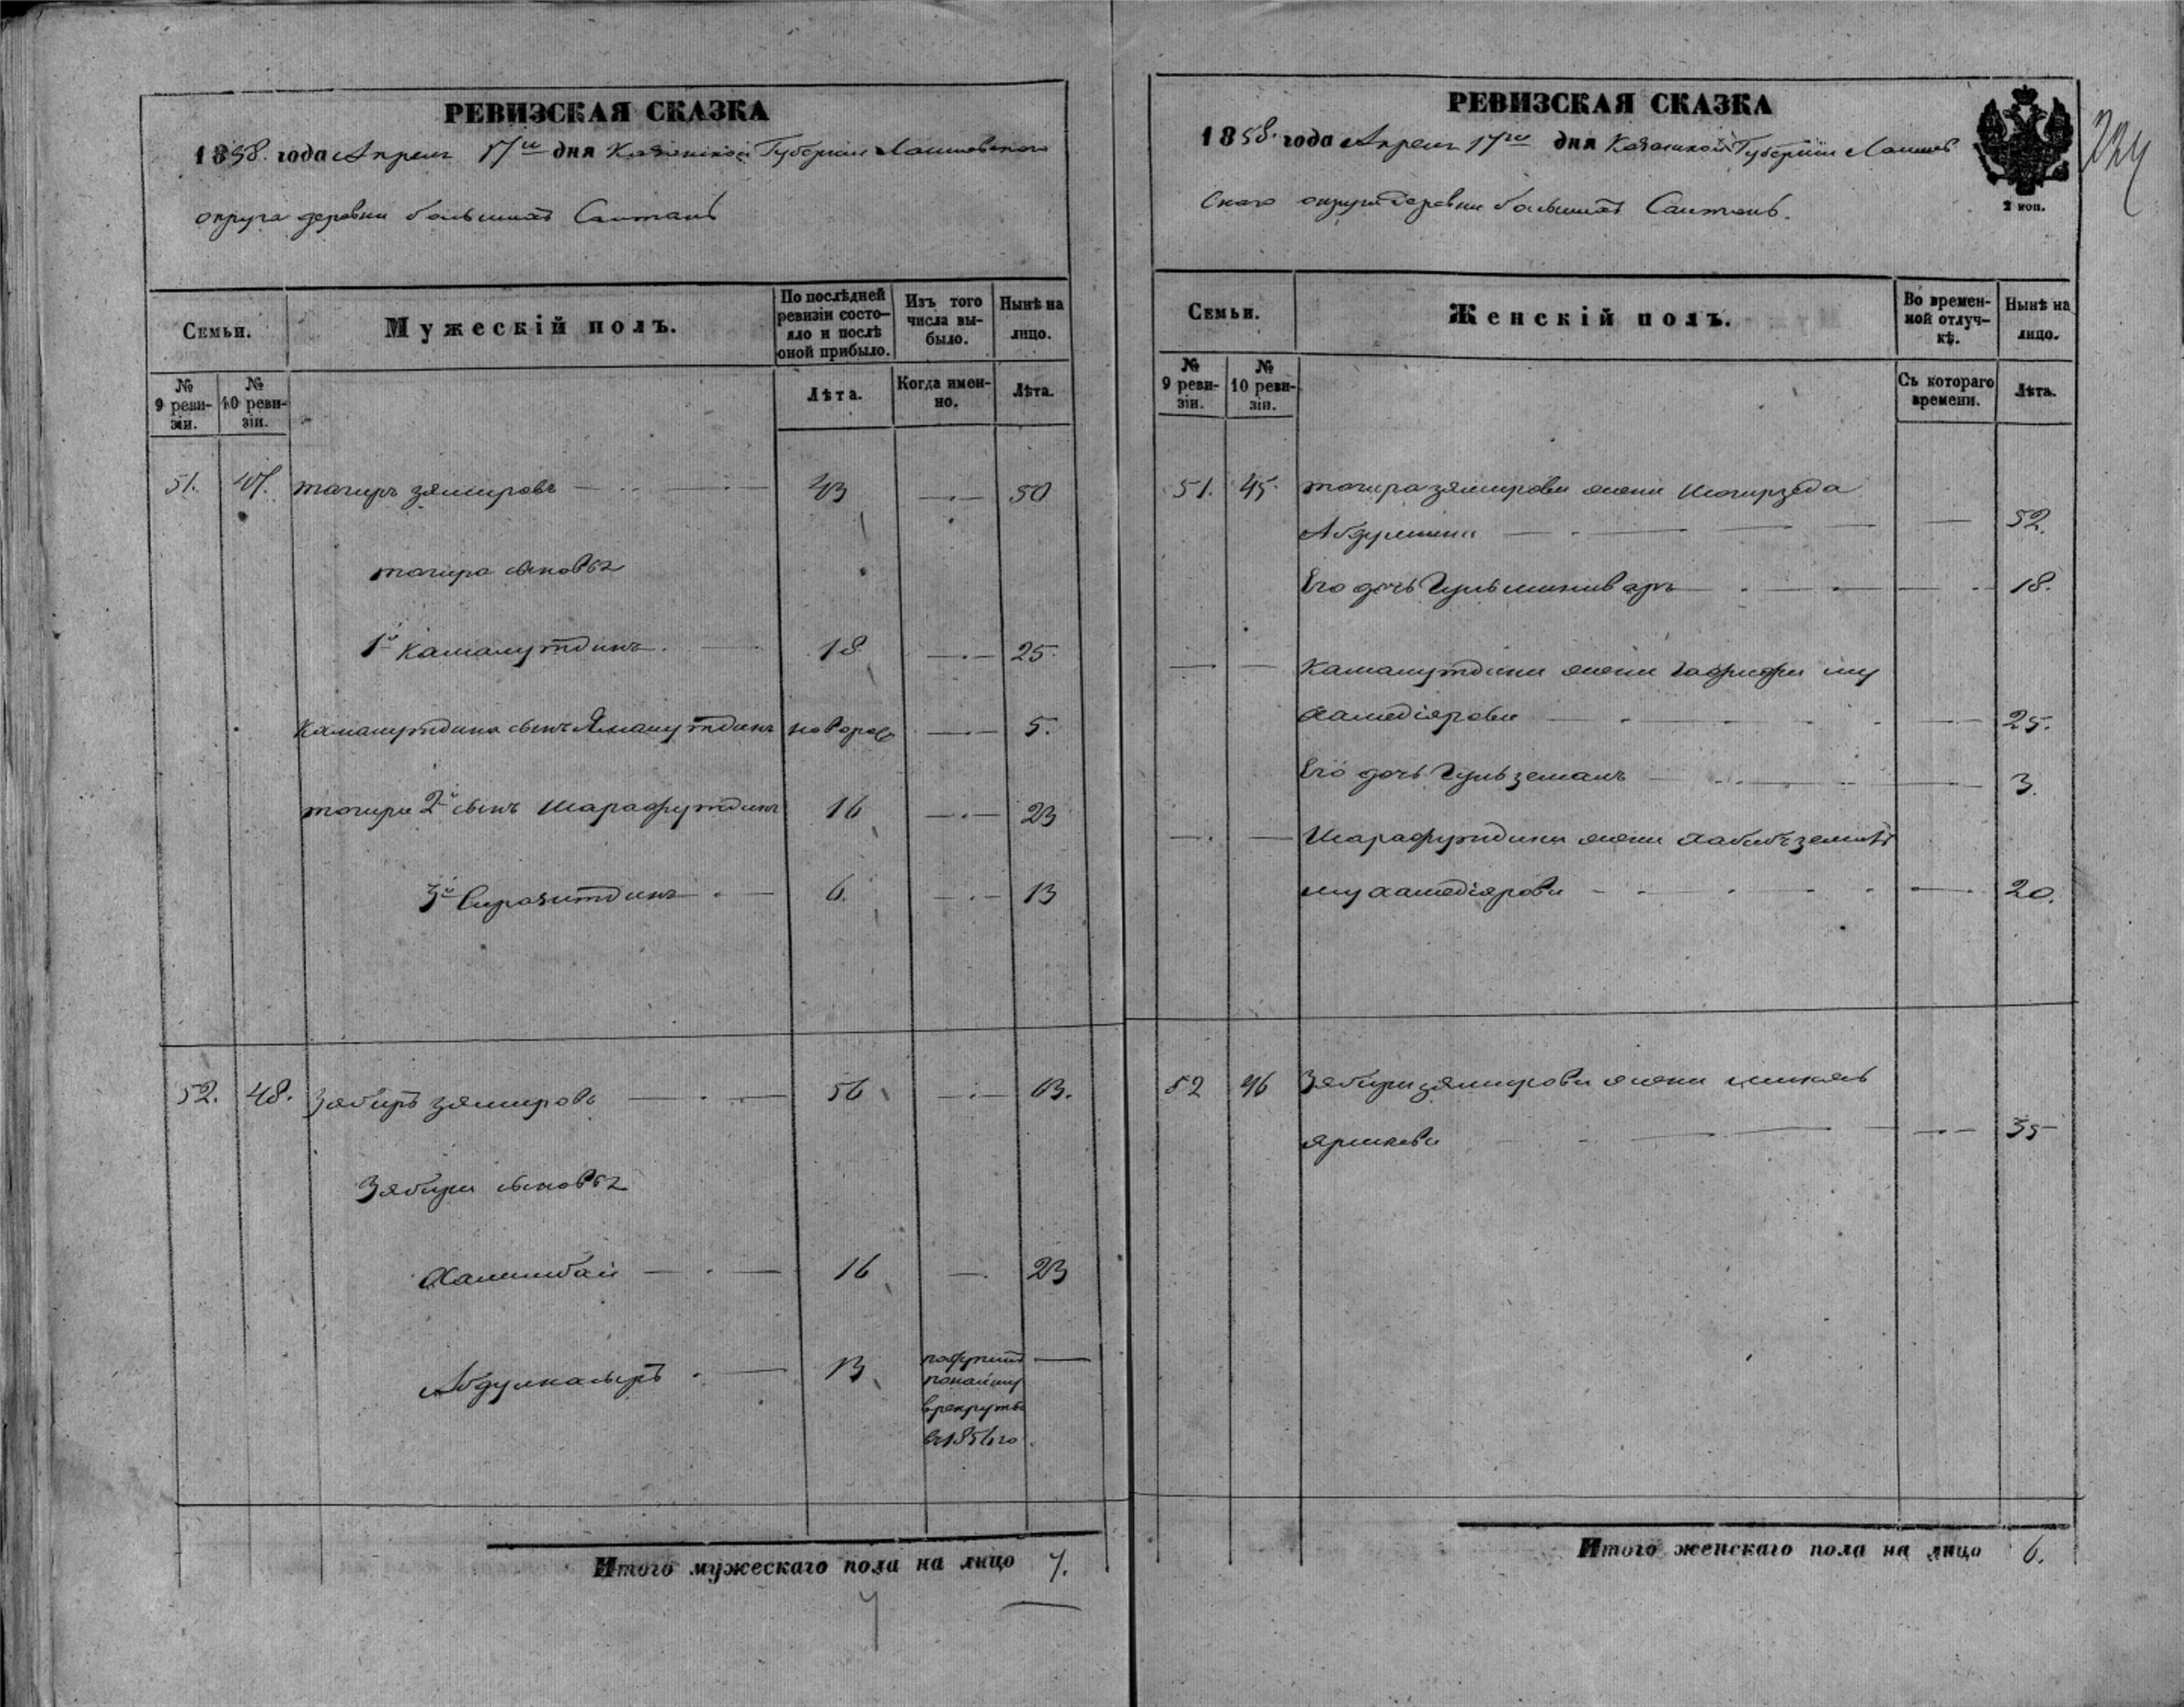 РЕВИЗСКАЯ СКАЗКА
1858. года Апреля 17го дня Казанской Губернии Лаишевского
округа деревни больших Салтан
Семьи.
Мужескій полъ.
По послѣдней ревизіи состояло и послѣ оной прибыло.
Изъ того числа выбыло.
Нынѣ на лицо.
№ 9 ревизіи.
№ 10 ревизіи.
Лѣта.
Когда именно.
Лѣта.
51. 47. тагиръ зямировъ 43 50
тагира сыновья
1й Камалутдинъ 18 25.
Камалутдина сынъ Ямалутдинъ новорож 5.
тагира 2й сынъ Шарафутдинъ 16 23
3й Сиразитдинъ 6. 13
52. 48. Зябиръ зямировъ 56 63.
Зябира сыновья
Халитбай 16 23
Абдулнасыръ 13
в рекруты
въ 1856 го
Итого мужескаго пола на лицо 7.
7
РЕВИЗСКАЯ СКАЗКА
1858. года Апреля 17го дня Казанской Губернии Лаишев
ского округа деревни больших Салтанъ.
2 коп.
224
Семьи.
Женскій полъ.
Во временной отлучкѣ.
Нынѣ на лицо.
№ 9 ревизіи.
№ 10 ревизіи.
Съ котораго времени.
Лѣта.
51. 45. тагира зямирова жена Шагирзада
Абдулина 52.
Его дочь Гульминивар 18.
Камалутдина жена Гафифа му
хамедіярова 25.
Его дочь Гульземалъ 3.
Шарафутдина жена Хабибземал
мухамедіярова 20.
52 46 Зябира зямирова жена
35
Итого женскаго пола на лицо 6.